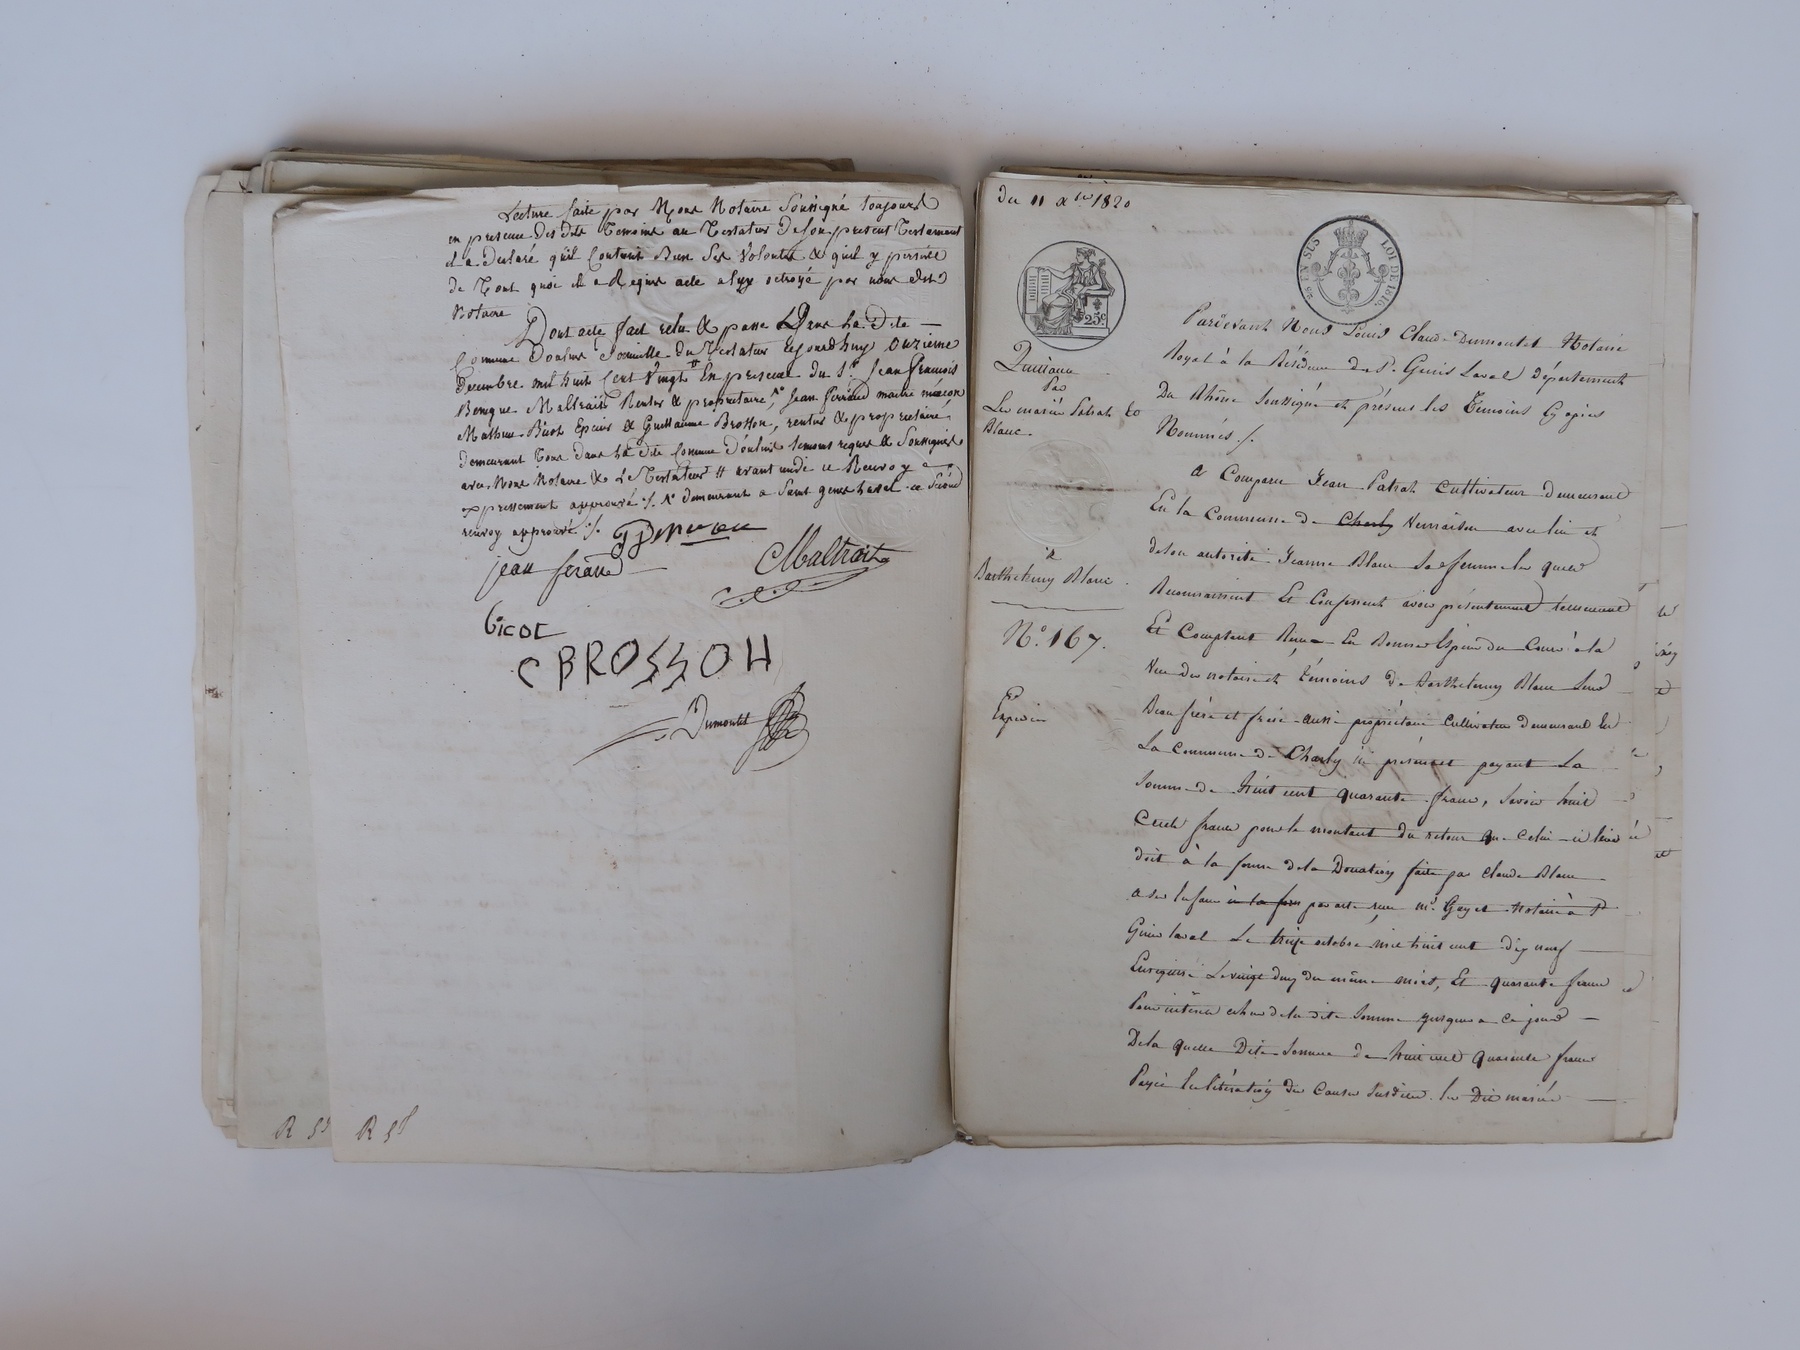 Lecture faite par Nous Notaire Soussigné toujours
en presence des dits Temoins au Testateur De son present Testament
il a Declaré qu'il Contient Bien Ses Volontés & qu'il y persiste
de Tout quoi il a Requis acte a luy octroyé par nous dit
Notaire
Dont acte fait relu & passé Dans la Dite
Commune Doulins Domicille du Testateur Le jourdhuy Onzieme
Decembre mil huit Cent Vingt En presence du Sr. Jean francois
Benigne Maltrait Rentier & proprietaire, Jean ferrand maitre macon
Mathieu Bicot Epicier & Guillaume Brosson, rentier & proprietaire
demeurant Tous dans la Dite Commune Doulins temoins requis & Soussignés
avec Nous Notaire & Le Testateur # avant midi ce Renvoy
expressement approuvé ./. demeurant a Saint genis Laval ce Second
renvoy approuvé ./.
jean ferand
Maltrait
Bicot
C BROSSON
Dumontet
R 55 R 58
Du 11 Xbre 1820
EN SUS LOI DE 1816
25 c
Quittance
Par
Les mariés Patrat &
Blanc.
à
Barthelemy Blanc.
N.° 167.
Expedié
Pardevant Nous Louis Claude Dumontet Notaire
Royal à la Résidence de St. Genis Laval département
Du Rhône Soussigné et présens les Témoins Cy après
Nommés ./.
a Comparu Jean Patrat Cultivateur demeurant
En la Commune de Charly Vernaison avec lui et
de son autorité Jeanne Blanc Sa femme les quels
Reconnaissent Et Confessent avoir présentement Réellement
Et Comptant Reçu En Bonnes Espèces du Cours à la
Vue du notaire et témoins de Barthelemy Blanc leur
Beau frère et frère aussi propriétaire Cultivateur demeurant En
La Commune de Charly ici présent et payant La
Somme de huit cent quarante francs, Savoir huit
Cents francs pour le montant du retour que celui-ci leur
doit à la forme de la Donation faite par Claude Blanc
a ses Enfans à la form par acte reçu Me. Gayet Notaire à St
Genis Laval Le treize octobre mil huit cent dix neuf
Enregistré Le vingt deux du même mois, Et quarante francs
Pour intérêts échus de la dite Somme jusques a ce jour
De la quelle Dite Somme de huit cent quarante francs
Payée En libération des Causes Susdites les Dits mariés